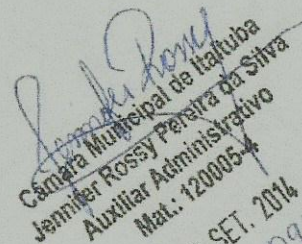 Jennifer Rossy
Câmara Municipal de Itaituba
Jennifer Rossy Pereira da Silva
Auxiliar Administrativo
Mat.: 1200054
SET. 2014